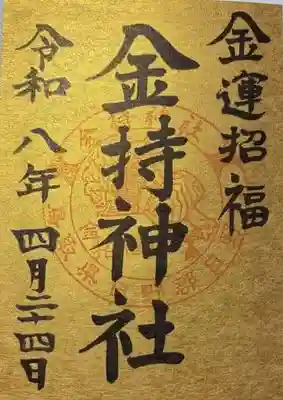 金運招福
金持神社
令和八年四月二十四日